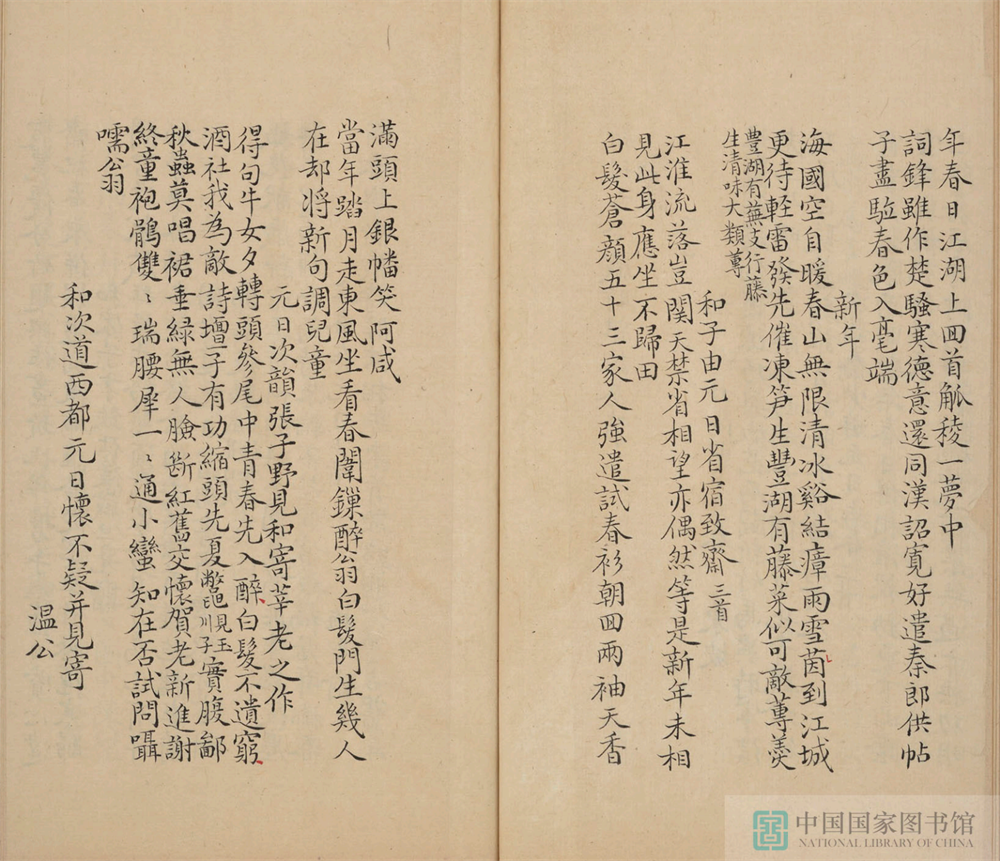 年春日江湖上回首觚稜一夢中
詞鋒雖作楚騷寒德意還同漢詔寛好遣秦郎供帖
子盡驅春色入毫端
新年
海國空自暖春山無限清冰谿結瘴雨雪茵到江城
更待軽雷發先催凍笋生豐湖有藤菜似可敵蓴羮
豊湖有蕪支行藤
生清味大類蓴
和子由元日省宿致齋三首
江淮流落豈関天禁省相望亦偶然等是新年未相
見此身應坐不歸田
白髪蒼顔五十三家人強遣試春衫朝回兩袖天香
滿頭上銀幡笑阿咸
當年踏月走東風坐看春闈鏁醉翁白髪門生幾人
在却将新句調兒童
元日次韻張子野見和寄莘老之作
得句牛女夕轉頭參尾中青春先入醉白髪不遺窮
酒社我為敵詩壇子有功縮頭先夏鼈見玉川子實腹鄙
秋蟲莫唱裙垂緑無人臉斷紅舊交懐賀老新進謝
終童袍鶻雙〻瑞腰犀一〻通小蠻知在否試問囁
嚅公翁
和次道西都元日懐不疑并見寄
温公
中国国家图书馆
NATIONAL LIBRARY OF CHINA